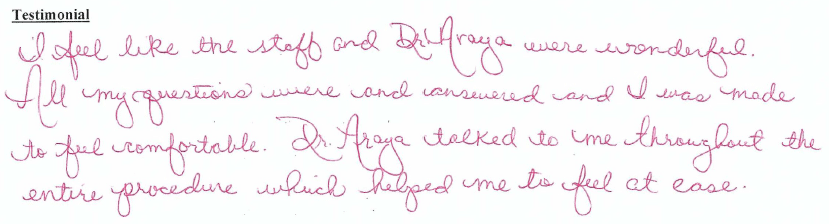 Testimonial
I feel like the staff and Dr. Araya were wonderful.
All my questions were and answered and I was made
to feel comfortable. Dr. Araya talked to me throughout the
entire procedure which helped me to feel at ease.